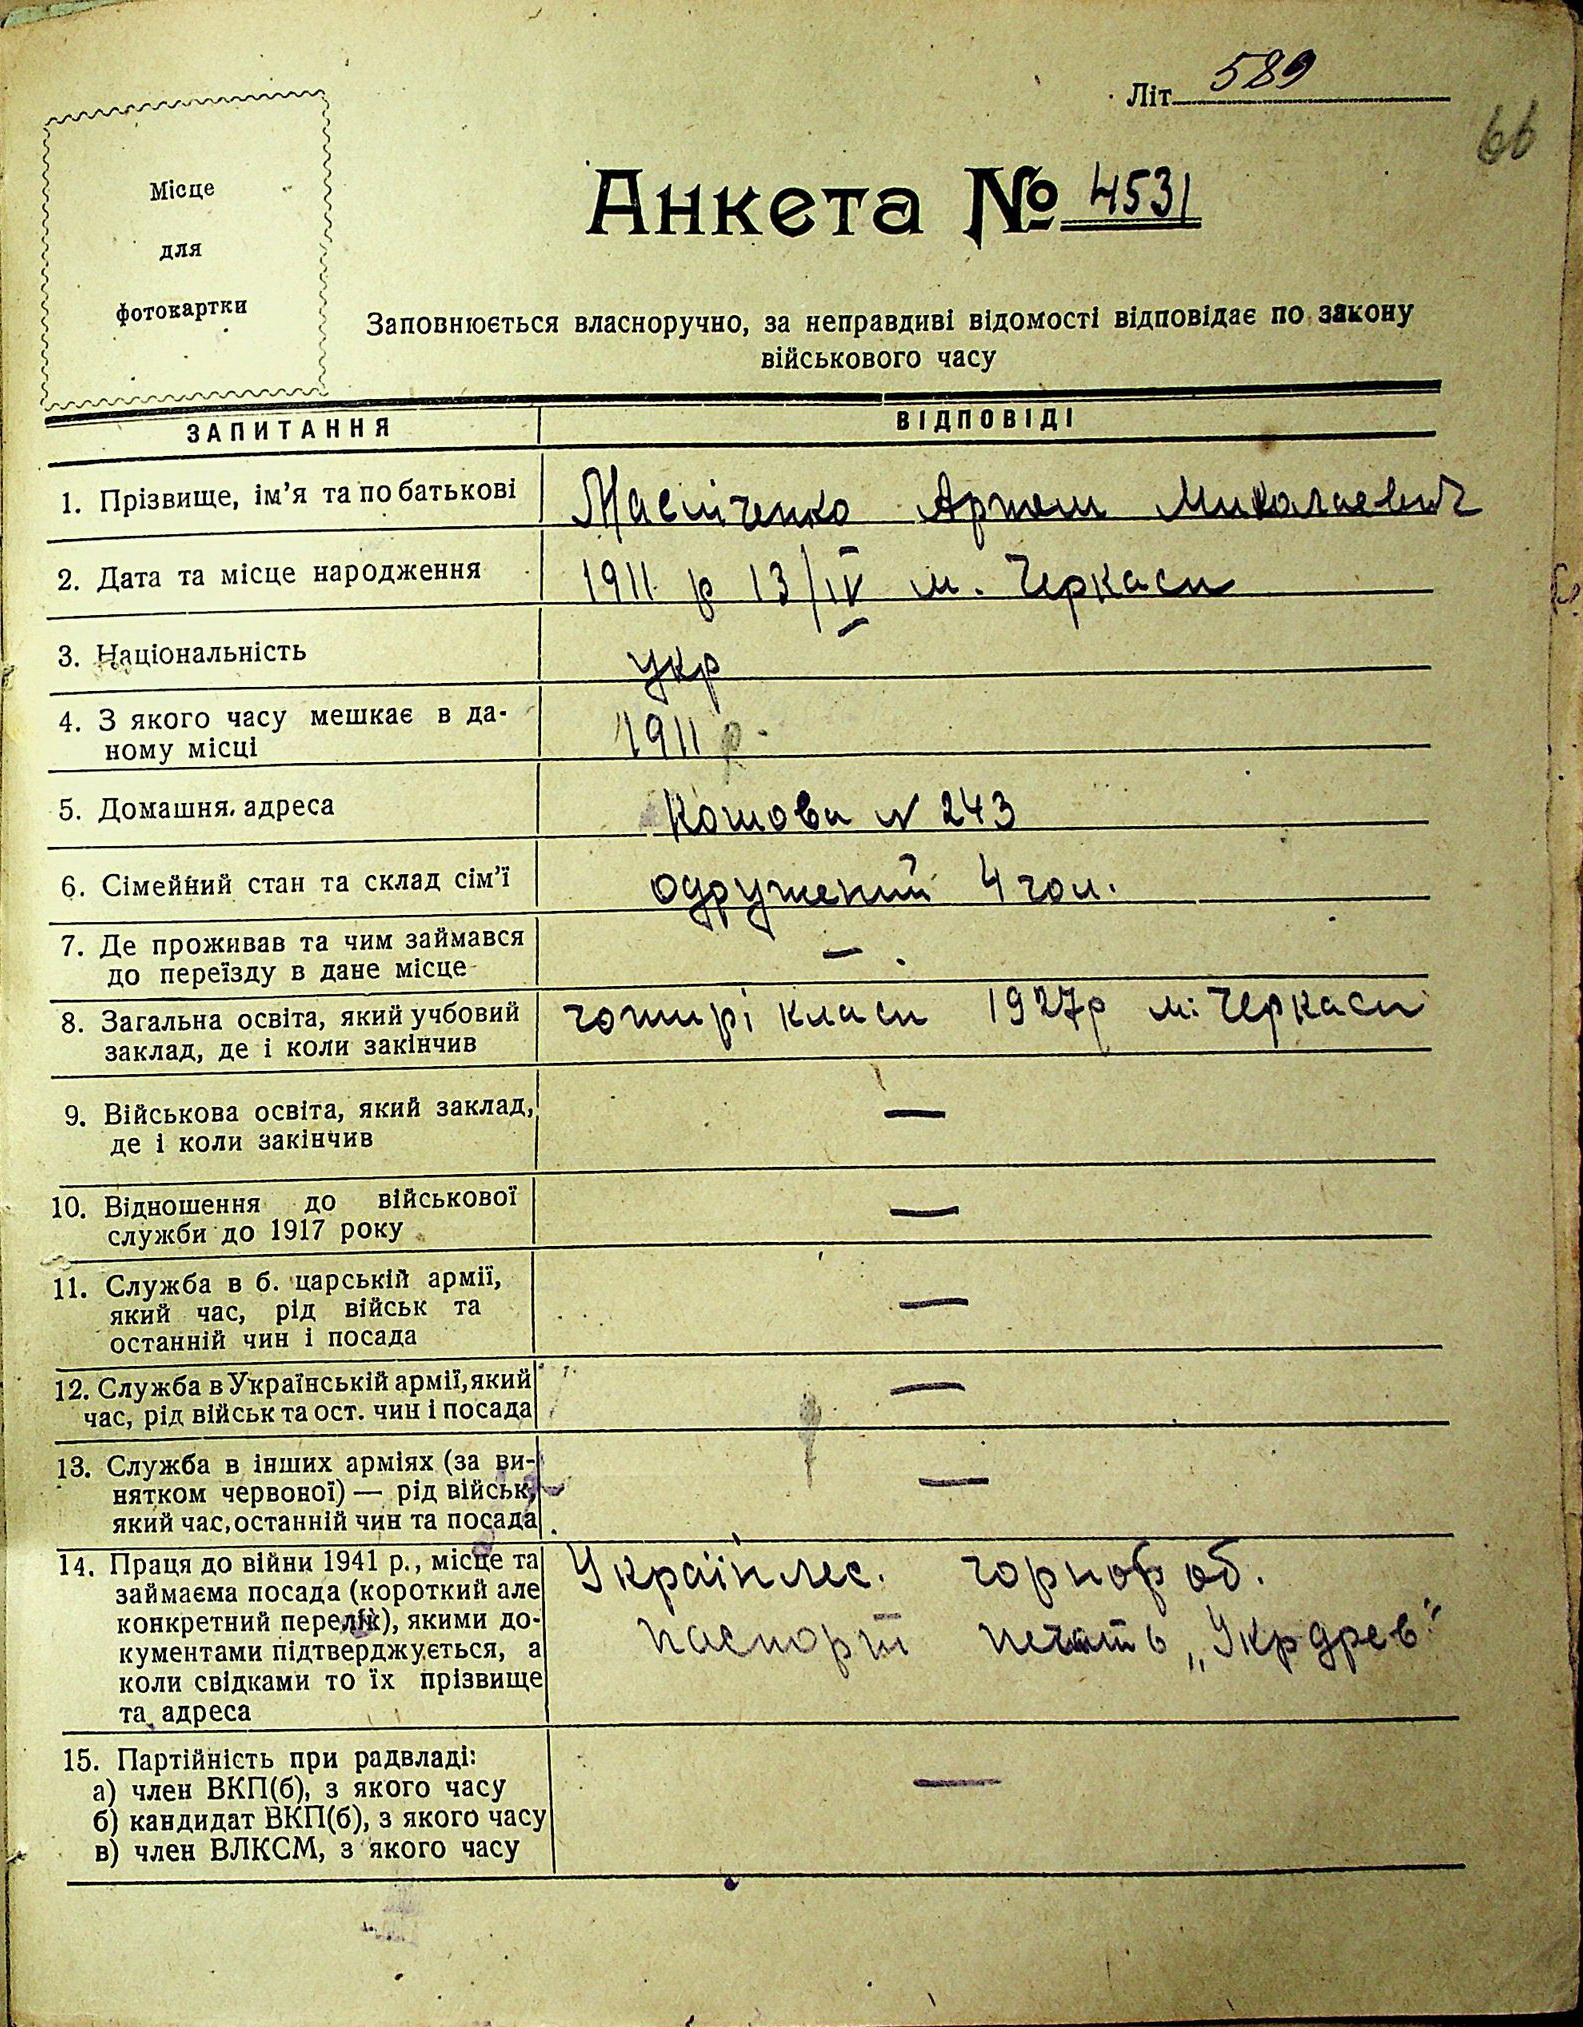 Літ. 589
66
Місце
для
фотокартки
Анкета № 4531
Заповнюється власноручно, за неправдиві відомості відповідає по закону
військового часу
ЗАПИТАННЯ ВІДПОВІДІ
1. Прізвище, ім'я та по батькові Артем Миколаевич
2. Дата та місце народження 1911 р 13/IV м. Черкаси
3. Національність укр
4. З якого часу мешкає в да-
ному місці 1911 р.
5. Домашня адреса N 243
6. Сімейний стан та склад сім'ї одружений 4 чол.
7. Де проживав та чим займався
до переїзду в дане місце —
8. Загальна освіта, який учбовий
заклад, де і коли закінчив чотирі класи 1927р м. Черкаси
9. Військова освіта, який заклад,
де і коли закінчив —
10. Відношення до військової
служби до 1917 року —
11. Служба в б. царській армії,
який час, рід військ та
останній чин і посада —
12. Служба в Українській армії, який
час, рід військ та ост. чин і посада —
13. Служба в інших арміях (за ви-
нятком червоної) — рід військ,
який час, останній чин та посада —
14. Праця до війни 1941 р., місце та
займаєма посада (короткий але
конкретний перелік), якими до-
кументами підтверджується, а
коли свідками то їх прізвище
та адреса
Українлес. чорнороб.
паспорт печать „Укрдрев"
15. Партійність при радвладі:
а) член ВКП(б), з якого часу
б) кандидат ВКП(б), з якого часу
в) член ВЛКСМ, з якого часу —